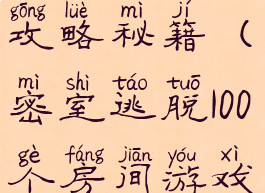 gōng lüè mì jí
攻略秘籍（
mì shì táo tuō
密室逃脱100
gè fáng jiān yóu xì
个房间游戏